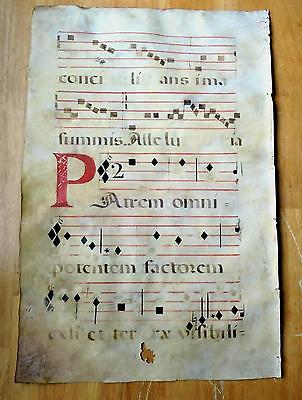 concilians ima
summis. Allelu ia
PAtrem omni-
potentem factorem
cæli et ter ræ visibili-